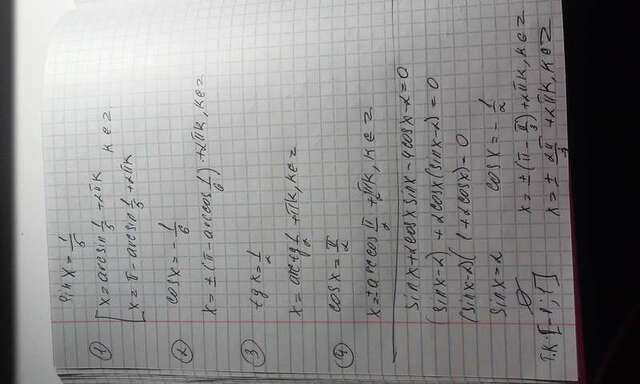 sin x = 1/5
1 x = arcsin 1/5 + 2πk
x = π - arcsin 1/5 + 2πk k ∈ Z
2 cos x = - 1/6
x = ± (π - arccos 1/6) + 2πk, k ∈ Z
3 tg x = 1/2
x = arctg 1/2 + πk, k ∈ Z
4 cos x = π/2
x = ± arccos π/2 + 2πk, k ∈ Z
sin x + 2cos x sin x - 4cos x - 2 = 0
(sin x - 2) + 2cos x (sin x - 2) = 0
(sin x - 2)(1 + 2cos x) = 0
sin x = 2 cos x = - 1/2
∅ x = ± (π - π/3) + 2πk, k ∈ Z
т.к. [-1; 1] x = ± 2π/3 + 2πk, k ∈ Z